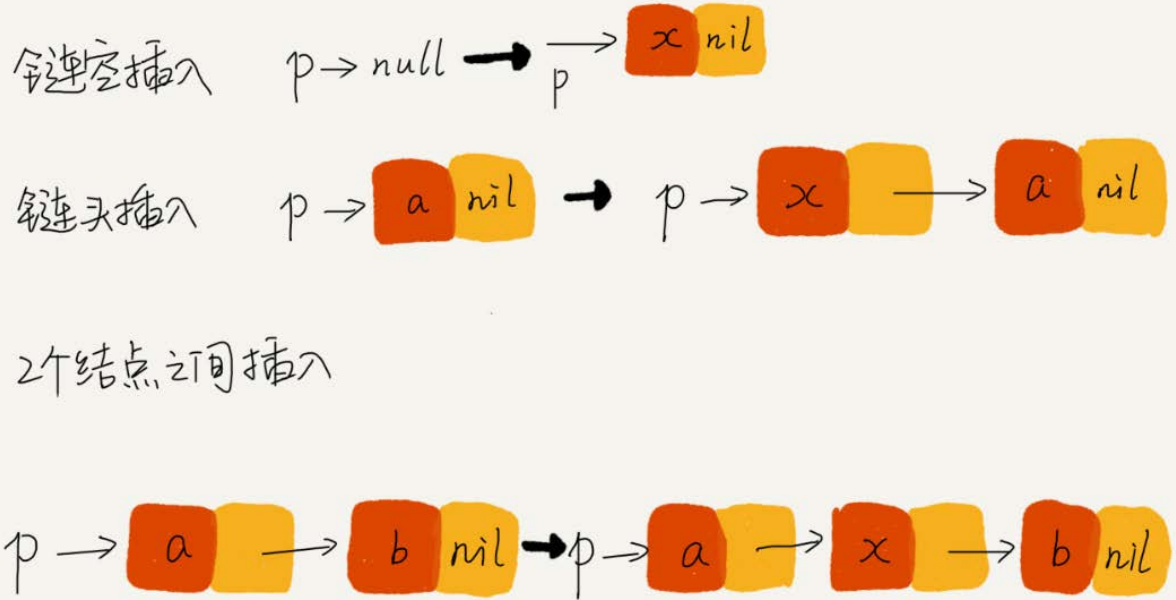 链空插入 p → null → p → x nil
链头插入 p → a nil → p → x → a nil
2个结点之间插入
p → a → b nil → p → a → x → b nil